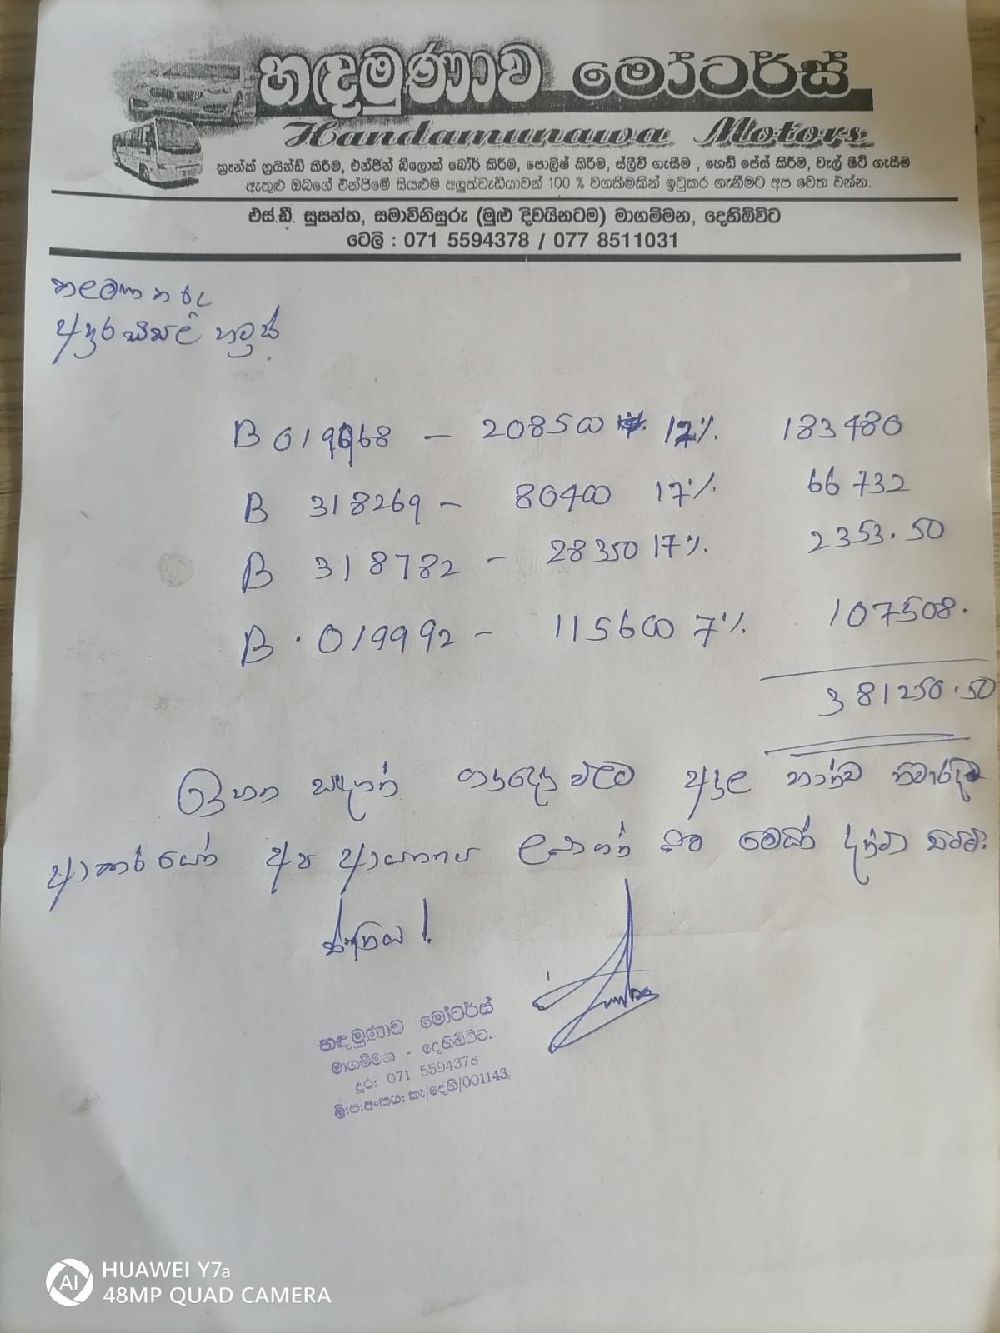 හඳමුණාව මෝටර්ස්
Handamunawa Motors
ක්‍රෑන්ක් ග්‍රයින්ඩ් කිරීම, එන්ජින් බ්ලොක් බෝර් කිරීම, පොලිෂ් කිරීම, ස්ලීව් ගැසීම , හෙඩ් පේස් කිරීම, වැල් ෂීට් ගැසීම
ඇතුළු ඔබගේ එන්ජිමේ සියළුම අලුත්වැඩියාවන් 100 % වගකීමකින් ඉටුකර ගැනීමට අප වෙත එන්න.
එස්.ඩී. සුසන්ත, සමාවිනිසුරු (මුළු දිවයිනටම) මාගම්මන, දෙහිඕවිට
ටෙලි : 071 5594378 / 077 8511031
කළමණාකරු
B 019668 - 208500 12% 183480
B 318269 - 80400 17% 66732
B 318782 - 28350 17% 2353.50
B . 019992 - 115600 7% 107508.
381250.50
ඉහත සඳහන් අදාල භාණ්ඩ
ආකාරයෙන් අප ආයතනය මෙයින් දන්වා සිටිමි.
ස්තූතියි !
හඳමුණාව මෝටර්ස්
මාගම්මන - දෙහිඕවිට.
දුර: 071 5594378
ලි:ප:අංකය: කෑ/දෙහි/001143
AI
HUAWEI Y7a
48MP QUAD CAMERA